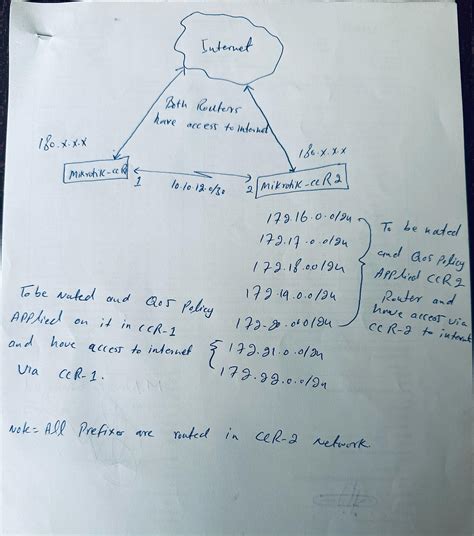 Internet
Both Routers
have access to internet
180.x.x.x
180.x.x.x
Mikrotik-ccR
1
10.10.12.0/30
2
Mikrotik-ccR2
172.16.0.0/24
172.17.0.0/24
172.18.0.0/24
172.19.0.0/24
172.20.0.0/24
172.21.0.0/24
172.22.0.0/24
To be nated
and QoS policy
Applied CCR2
Router and
have access via
CCR-2 to internet
To be nated and QoS policy
Applied on it in CCR-1
and have access to internet
via CCR-1.
Note= All Prefixes are routed in CCR-2 Network